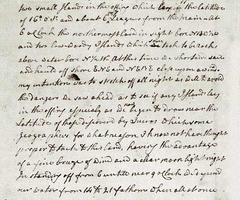 two small Islands in the offing which lay in the Latitude
of 16° 0' S and about 6 Leagues from the main at
6 oClock the northermost land in sight bore
and two low woody Islands which some took to be rocks
above water bore N ½ W At this time we shorten'd sail
and hauld off shore ENE and NEBE close upon a wind
my intention was to stretch off all night as well to avoid
the dangers we saw ahead as to see if any Islands lay
in the offing especially as we began to draw near the
Latitude of those discover'd by Quiros which some
geographers for what reason I know not have thought
proper to tack to this land, having the advantage
of a fine breeze of wind and a clear moonlight night
In standing off from 6 untill near 9 oClock we deepend
our water from 14 to 21 fathom when all at once